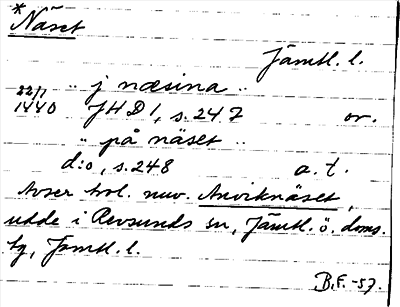 *Näset
Jämtl. l.
" j næsina "
22/7
1440 JHD1, s. 247 or.
" på näset "
d:o, s. 248 a. t.
Avser trol. nuv. Anviknäset,
udde i Revsunds sn, Jämtl. ö. doms.
tg, Jämtl. l.
B.F. -57.